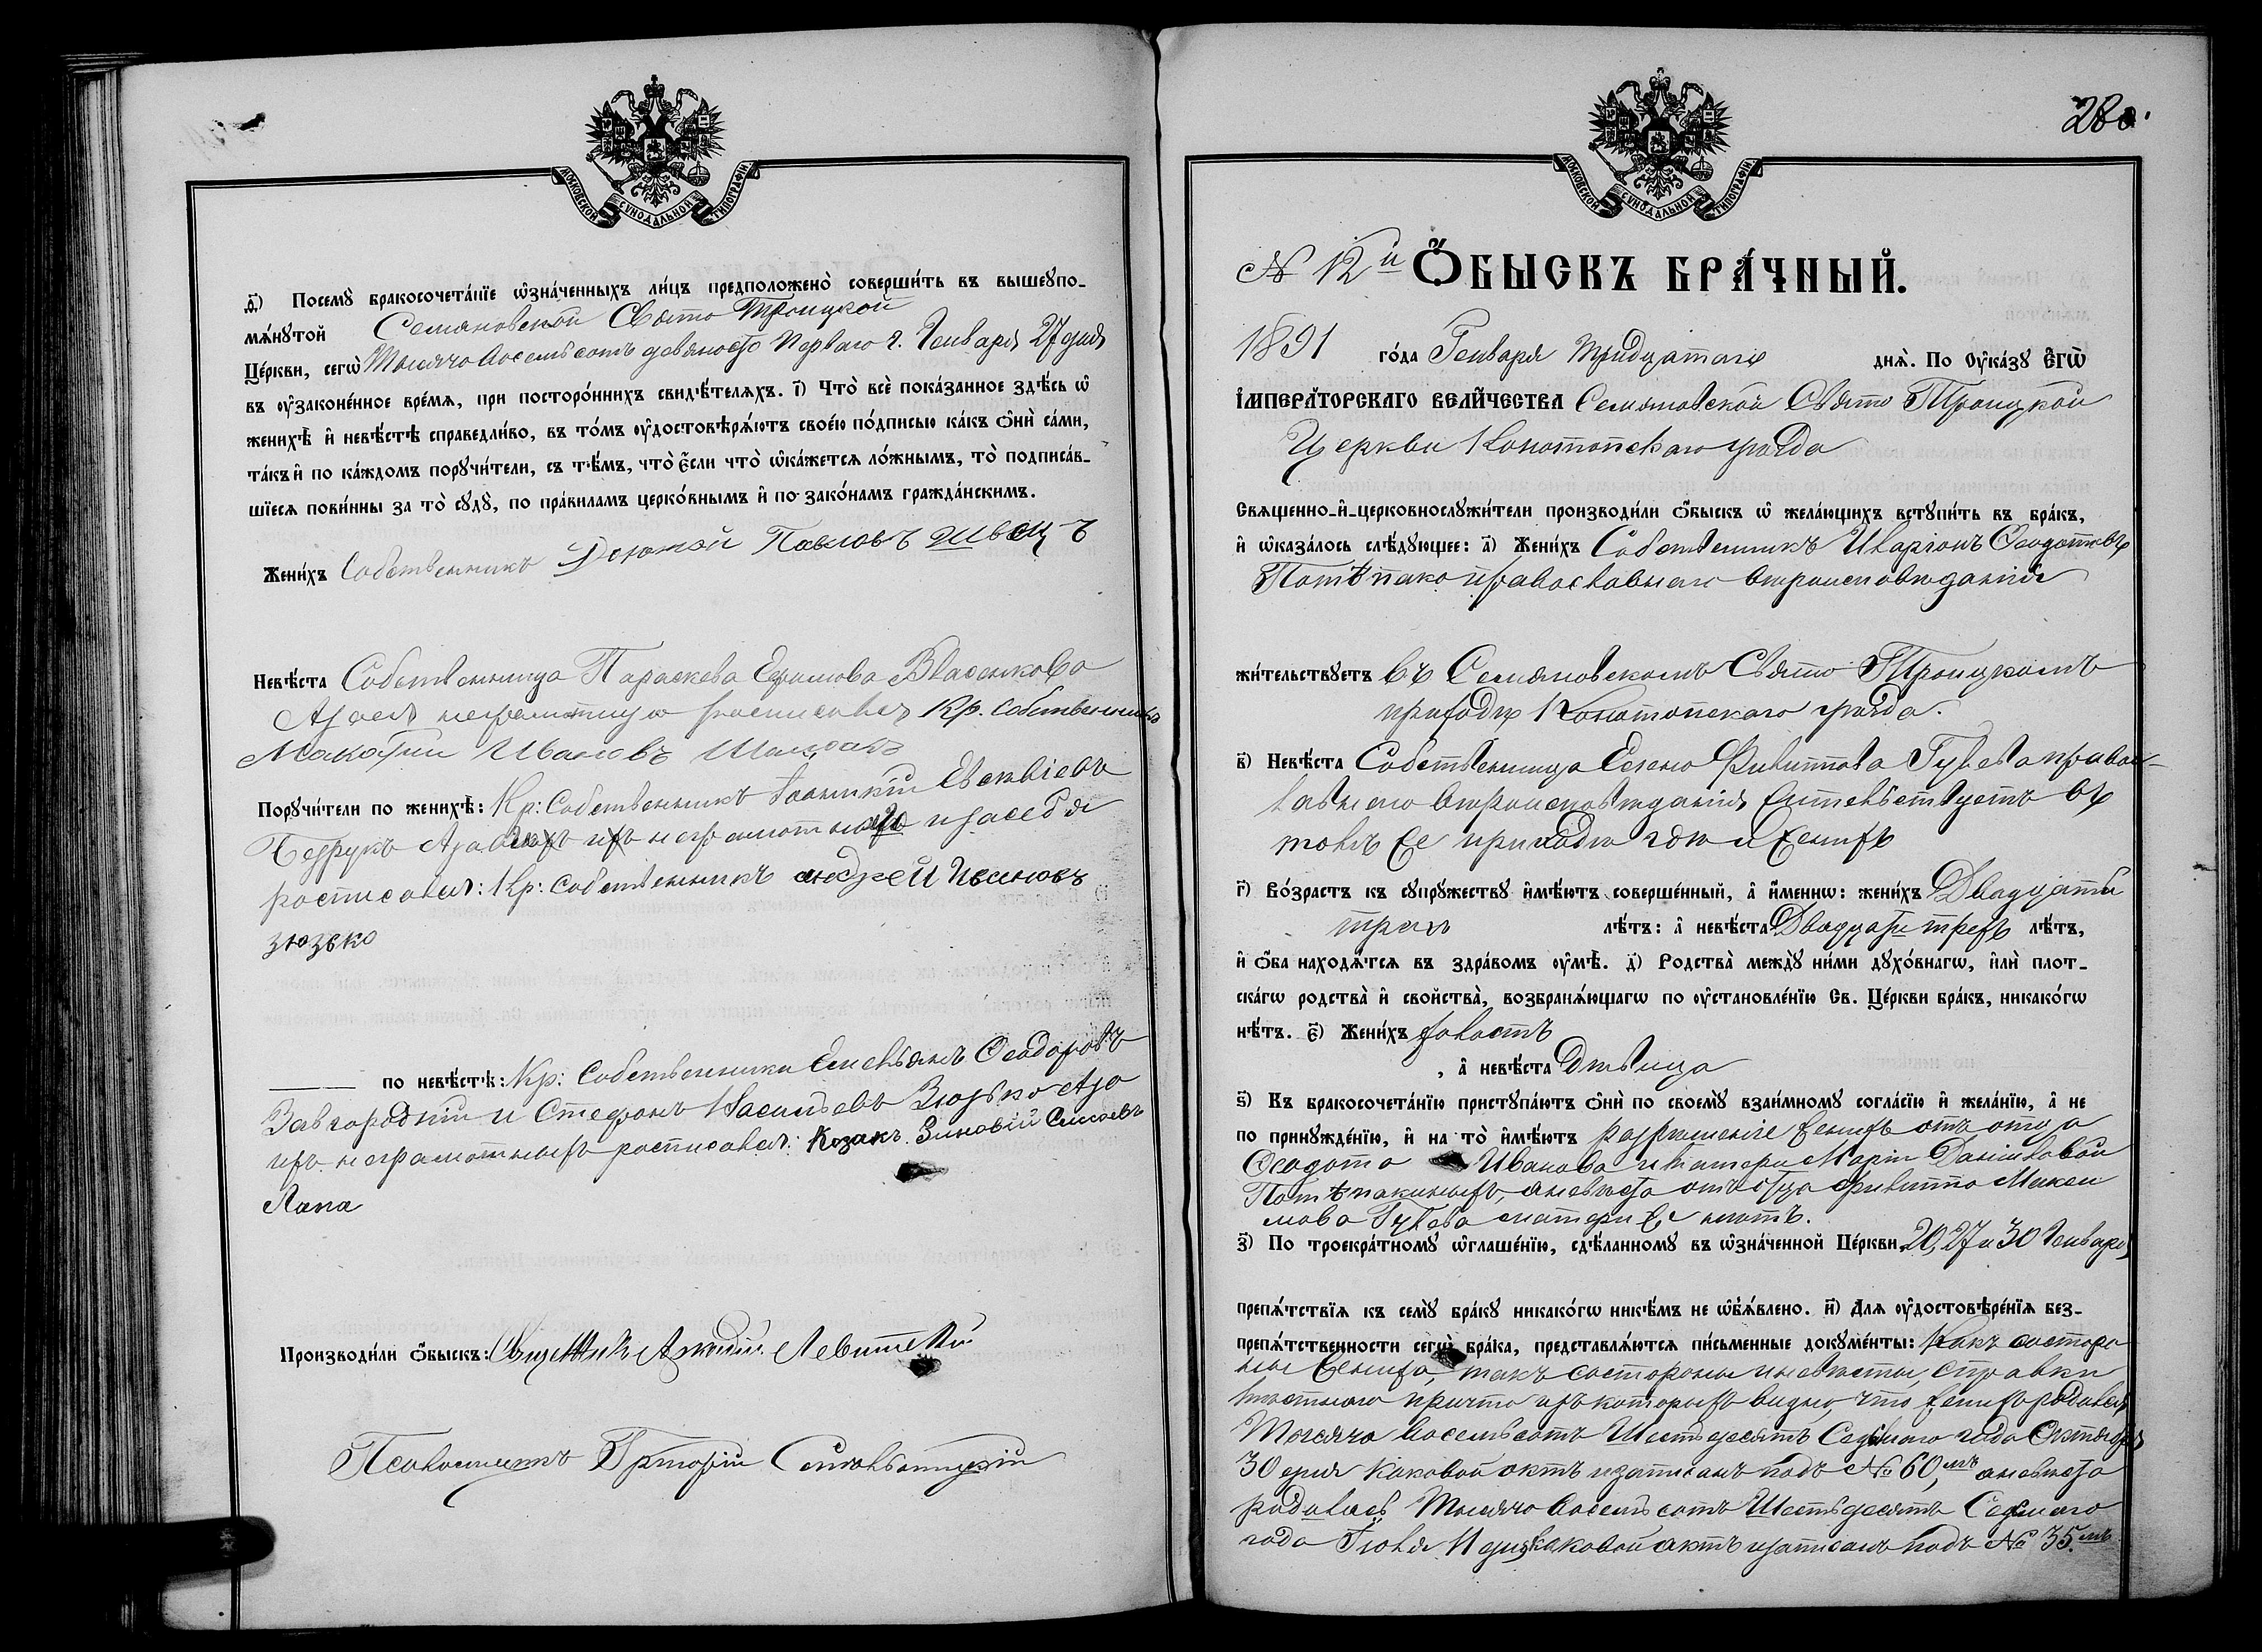 МОСКОВСКОЙ СѴНОДАЛЬНОЙ ТИПОГРАФІИ
д҃) Посемꙋ̀ бракосочета́нїе ѡ҆зна́ченныхъ ли́цъ предположено̀ соверши́ть въ вышеꙋпо-
мѧ́нꙋтой Семяновской Свято Троицкой
Це́ркви, сегѡ̀ Тысячо восемьсотъ девяносто перваго г. Генваря 27 дня
въ ᲂу҆законе́нное вре́мѧ, при посторо́ннихъ свидѣ́телѧхъ. і҃) Что̀ всѐ пока́занное здѣ́сь ѡ҆
женихѣ̀ и҆ невѣ́стѣ справедли́во, въ то́мъ ᲂу҆достовѣрѧ́ютъ свое́ю по́дписью ка́къ ѻ҆нѝ са́ми,
та́къ и҆ по ка́ждомъ порꙋчи́тели, съ тѣ́мъ, что̀ є҆́сли что̀ ѡ҆ка́жетсѧ ло́жнымъ, то̀ подписа́в-
шїесѧ пови́нны за то̀ сꙋдꙋ̀, по пра́виламъ церко́внымъ и҆ по зако́намъ гражда́нскимъ.
Жени́хъ Собственникъ Павловъ Швецъ
Невѣ́ста Собственница Параскева Ефимова Власенкова
А за ея неграмотную росписался Кр. Собственникъ
Ивановъ
Порꙋчи́тели по женихѣ̀: Кр: Собственникъ Іоанникій Евсевіевъ
неграмотнаго и за себя
росписался: Кр: Собственникъ андрей Ивановъ
зюзько
по невѣ́стѣ: Кр: Собственники Емельянъ Ѳеодоровъ
Завгородній и Стефанъ Васильевъ Зюзько А за
ихъ неграмотныхъ росписался: Козакъ Зиновій
Лапа
Производи́ли ѻ҆́быскъ: Священникъ Левитскій
Псаломщикъ Григорій
280.
МОСКОВСКОЙ СѴНОДАЛЬНОЙ ТИПОГРАФІИ
№ 12й Ѻ҆́БЫСКЪ БРА́ЧНЫЙ.
1891 го́да Генваря тридцатаго днѧ̀. По ᲂу҆ка́зꙋ Є҆гѡ̀
І҆мпера́торскагѡ вели́чества Семяновской Свято Троицкой
Церкви Конотопскаго уезда
Свѧщенно-и҆-церковнослꙋжи́тели производи́ли ѻ҆́быскъ ѡ҆ жела́ющихъ встꙋпи́ть въ бра́къ,
и҆ ѡ҆каза́лось слѣ́дꙋющее: а҃) Жени́хъ Собственникъ Иларіонъ Ѳеодотовъ
Потѣпако православнаго вѣроисповѣданія
жи́тельствꙋетъ въ Семяновскомъ Свято Троицкомъ
приходѣ Конотопскаго уезда.
в҃) Невѣ́ста Собственница Елена Филиппова Гулева правос-
лавнаго вѣроисповѣданія жительствуетъ въ
томъ же приходѣ гдѣ и женихъ
г҃) Во́зрастъ къ сꙋпрꙋ́жествꙋ и҆мѣ́ютъ соверше́нный, а҆ и҆́меннѡ: жени́хъ Двадцати
трехъ лѣ́тъ: а҆ невѣ́ста Двадцати трехъ лѣ́тъ,
и҆ ѻ҆́ба нахо́дѧтсѧ въ здра́вомъ ᲂу҆мѣ̀. д҃) Родства̀ междꙋ̀ ни́ми дꙋхо́внагѡ, и҆лѝ плот-
ска́гѡ родства̀ и҆ свойства̀, возбранѧ́ющагѡ по ᲂу҆становле́нїю Св. Це́ркви бра́къ, никако́гѡ
нѣ́тъ. є҃) Жени́хъ холостъ
, а҆ невѣ́ста Дѣвица
ѕ҃) Къ бракосочета́нїю пристꙋпа́ютъ ѻ҆нѝ по своемꙋ̀ взаи́мномꙋ согла́сїю и҆ жела́нїю, а҆ не
по принꙋжде́нїю, и҆ на то̀ и҆мѣ́ютъ разрешеніе женихъ отъ отца
Ѳеодота Иванова и матери Маріи Даниловой
Потѣпакиныхъ, а невѣста отъ отца Филиппа Макси
мова Гулева матери ее нѣтъ.
з҃) По троекра́тномꙋ ѡ҆глаше́нїю, сдѣ́ланномꙋ въ ѡ҆зна́ченной Це́ркви 20, 27 и 30 Генваря
препѧ́тствїѧ къ семꙋ̀ бра́кꙋ никако́гѡ никѣ́мъ не ѡ҆б̾ѧ́влено. и҃) Длѧ ᲂу҆достовѣре́нїѧ без-
препѧ́тственности сегѡ̀ бра́ка, представлѧ́ютсѧ пи́сьменные докꙋме́нты: Какъ состоро
ны жениха, такъ состороны и невѣсты, справки
мѣстнаго причта изъ которыхъ видно, что женихъ родился
Тысячо восемьсотъ Шестьдесятъ Седьмаго года Октября
30 дня каковой актъ и записанъ подъ № 60,мъ а невѣста
родилась Тысячо восемьсотъ Шестьдесятъ Седьмаго
года Іюня 11 дня каковой актъ и записанъ подъ № 35.мъ